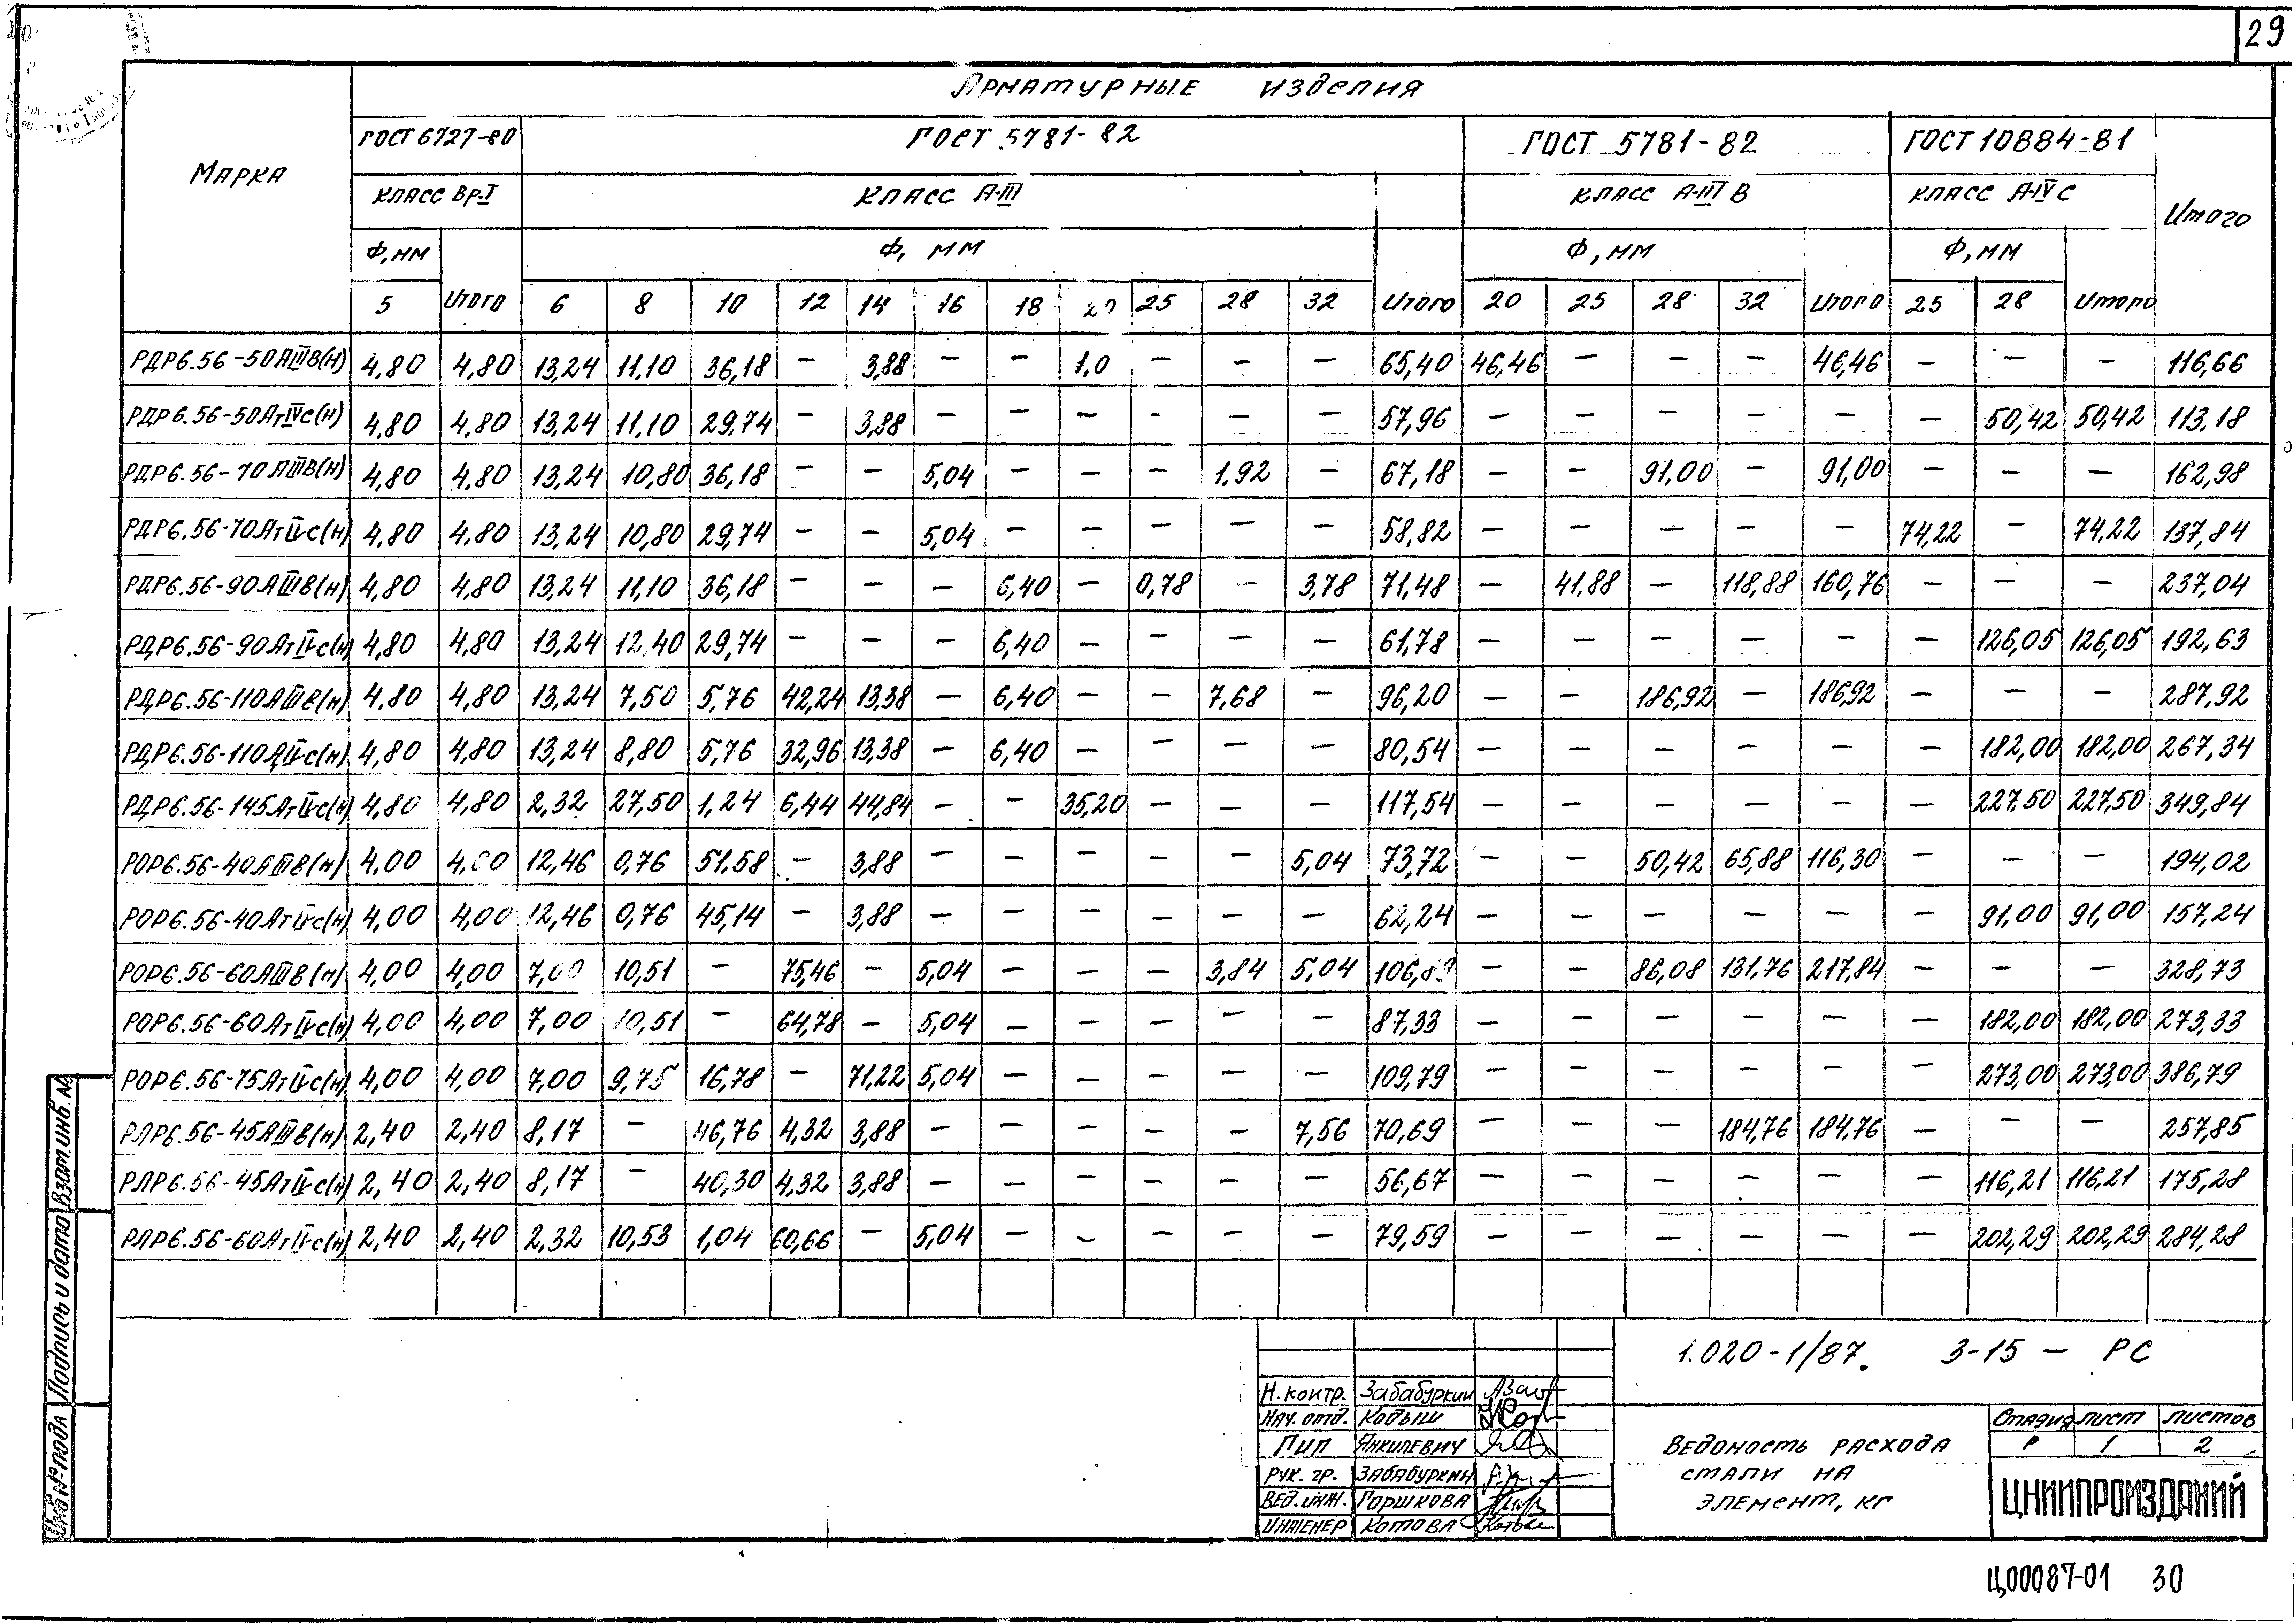 29
Арматурные изделия
Марка
ГОСТ 6727-80 ГОСТ 5781-82 ГОСТ 5781-82 ГОСТ 10884-81 Итого
Класс Вр-I Класс А-III Класс А-III В Класс А-IV С
Ф, мм Ф, мм Ф, мм Ф, мм
5 Итого 6 8 10 12 14 16 18 20 25 28 32 Итого 20 25 28 32 Итого 25 28 Итого
РДР6.56-50АIIIВ(н) 4,80 4,80 13,24 11,10 36,18 — 3,88 — — 1.0 — — — 65,40 46,46 — — — 46,46 — — — 116,66
РДР6.56-50АтIVС(н) 4,80 4,80 13,24 11,10 29,74 — 3,88 — — — — — — 57,96 — — — — — — 50,42 50,42 113,18
РДР6.56-70АIIIВ(н) 4,80 4,80 13,24 10,80 36,18 — — 5,04 — — — 1,92 — 67,18 — — 91,00 — 91,00 — — — 162,98
РДР6.56-70АтIVС(н) 4,80 4,80 13,24 10,80 29,74 — — 5,04 — — — — — 58,82 — — — — — 74,22 — 74,22 137,84
РДР6.56-90АIIIВ(н) 4,80 4,80 13,24 11,10 36,18 — — — 6,40 — 0,78 — 3,78 71,48 — 41,88 — 118,88 160,76 — — — 237,04
РДР6.56-90АтIVС(н) 4,80 4,80 13,24 12,40 29,74 — — — 6,40 — — — — 61,78 — — — — — — 126,05 126,05 192,63
РДР6.56-110АIIIВ(н) 4,80 4,80 13,24 7,50 5,76 42,24 13,38 — 6,40 — — 7,68 — 96,20 — — 186,92 — 186,92 — — — 287,92
РДР6.56-110АтIVС(н) 4,80 4,80 13,24 8,80 5,76 32,96 13,38 — 6,40 — — — — 80,54 — — — — — — 182,00 182,00 267,34
РДР6.56-145АтIVС(н) 4,80 4,80 2,32 27,50 1,24 6,44 44,84 — — 35,20 — — — 117,54 — — — — — — 227,50 227,50 349,84
РОР6.56-40АIIIВ(н) 4,00 4,00 12,46 0,76 51,58 — 3,88 — — — — — 5,04 73,72 — — 50,42 65,88 116,30 — — — 194,02
РОР6.56-40АтIVС(н) 4,00 4,00 12,46 0,76 45,14 — 3,88 — — — — — — 62,24 — — — — — — 91,00 91,00 157,24
РОР6.56-60АIIIВ(н) 4,00 4,00 7,00 10,51 — 75,46 — 5,04 — — — 3,84 5,04 106,89 — — 86,08 131,76 217,84 — — — 328,73
РОР6.56-60АтIVС(н) 4,00 4,00 7,00 10,51 — 64,78 — 5,04 — — — — — 87,33 — — — — — — 182,00 182,00 273,33
РОР6.56-75АтIVС(н) 4,00 4,00 7,00 9,75 16,78 — 71,22 5,04 — — — — — 109,79 — — — — — — 273,00 273,00 386,79
РЛР6.56-45АIIIВ(н) 2,40 2,40 8,17 — 46,76 4,32 3,88 — — — — — 7,56 70,69 — — — 184,76 184,76 — — — 257,85
РЛР6.56-45АтIVС(н) 2,40 2,40 8,17 — 40,30 4,32 3,88 — — — — — — 56,67 — — — — — — 116,21 116,21 175,28
РЛР6.56-60АтIVС(н) 2,40 2,40 2,32 10,53 1,04 60,66 — 5,04 — — — — — 79,59 — — — — — — 202,29 202,29 284,28
Взам. инв. №
Подпись и дата
Инв № подл
1.020-1/87. 3-15 — РС
Н. контр. Забабуркин
Нач. отд. Кодыш
ГИП Янкилевич
Рук. гр. Забабуркин
Вед. инж. Горшкова
Инженер Котова
Ведомость расхода
стали на
элемент, кг
Стадия Лист Листов
Р 1 2
ЦНИИПРОМЗДАНИЙ
Ц00087-01 30